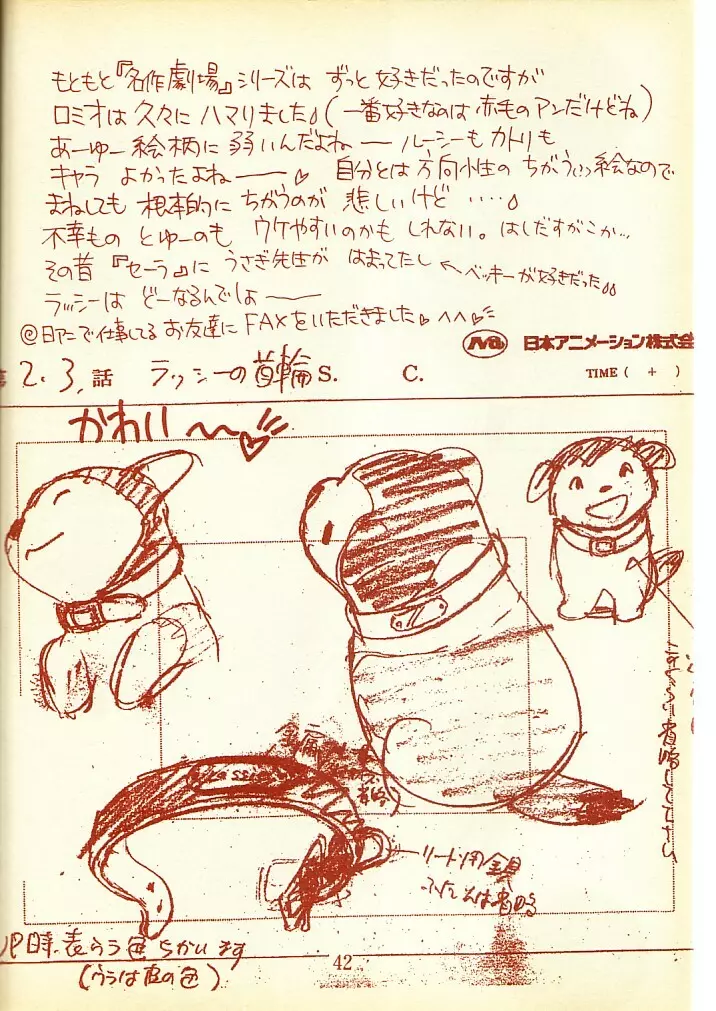 もともと『名作劇場』シリーズは ずっと好きだったのですが
ロミオは久々に ハマりました。(一番好きなのは赤毛のアンだけどね)
あーゆー絵柄に弱いんだよね ― ルーシーもカトリも
キャラ よかったよね―― ♡ 自分とは方向性の ちがう 絵なので
まねしても 根本的に ちがうのが 悲しいけど ‥‥。
不幸もの とゆーのも ウケやすいのかも しれない。はしだすがこか…
その昔 『セーラ』に うさぎ先生が はまってたし ←ベッキーが好きだった。
ラッシーは どーなるんでしょ――
@日アニで仕事してる お友達に FAXをいただきました♡ ^^♡
日本アニメーション株式会
2.3. 話 ラッシーの首輪 S. C. TIME ( + )
かわい〜〜♡
金属
リード用金具
ふだんは省略
時 表 うら 色 ちがい ます
(ウラは皮の色)
42